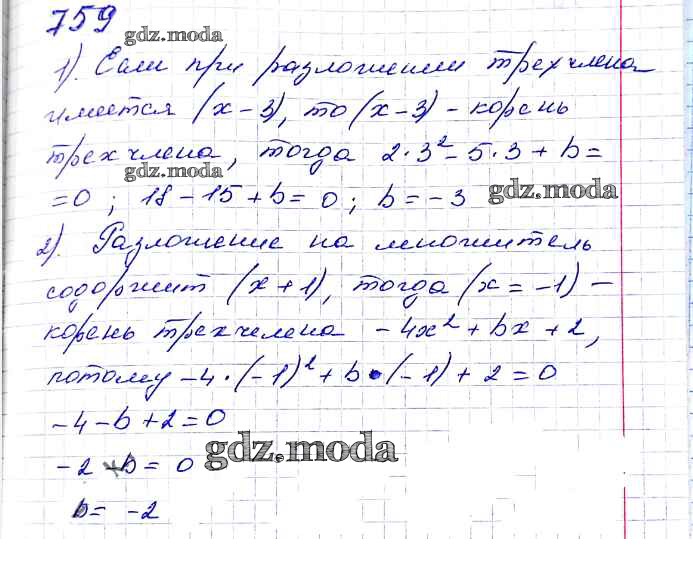 759
gdz.moda
1). Если при разложении трехчлена
имеется (x-3), то (x-3) - корень
трехчлена, тогда 2·3² - 5·3 + b =
gdz.moda
= 0 ; 18 - 15 + b = 0 ; b = -3
gdz.moda
2). Разложение на множитель
содержит (x+1), тогда (x = -1) -
корень трехчлена -4x² + bx + 2,
потому -4·(-1)² + b·(-1) + 2 = 0
-4 - b + 2 = 0
gdz.moda
-2 - b = 0
b = -2